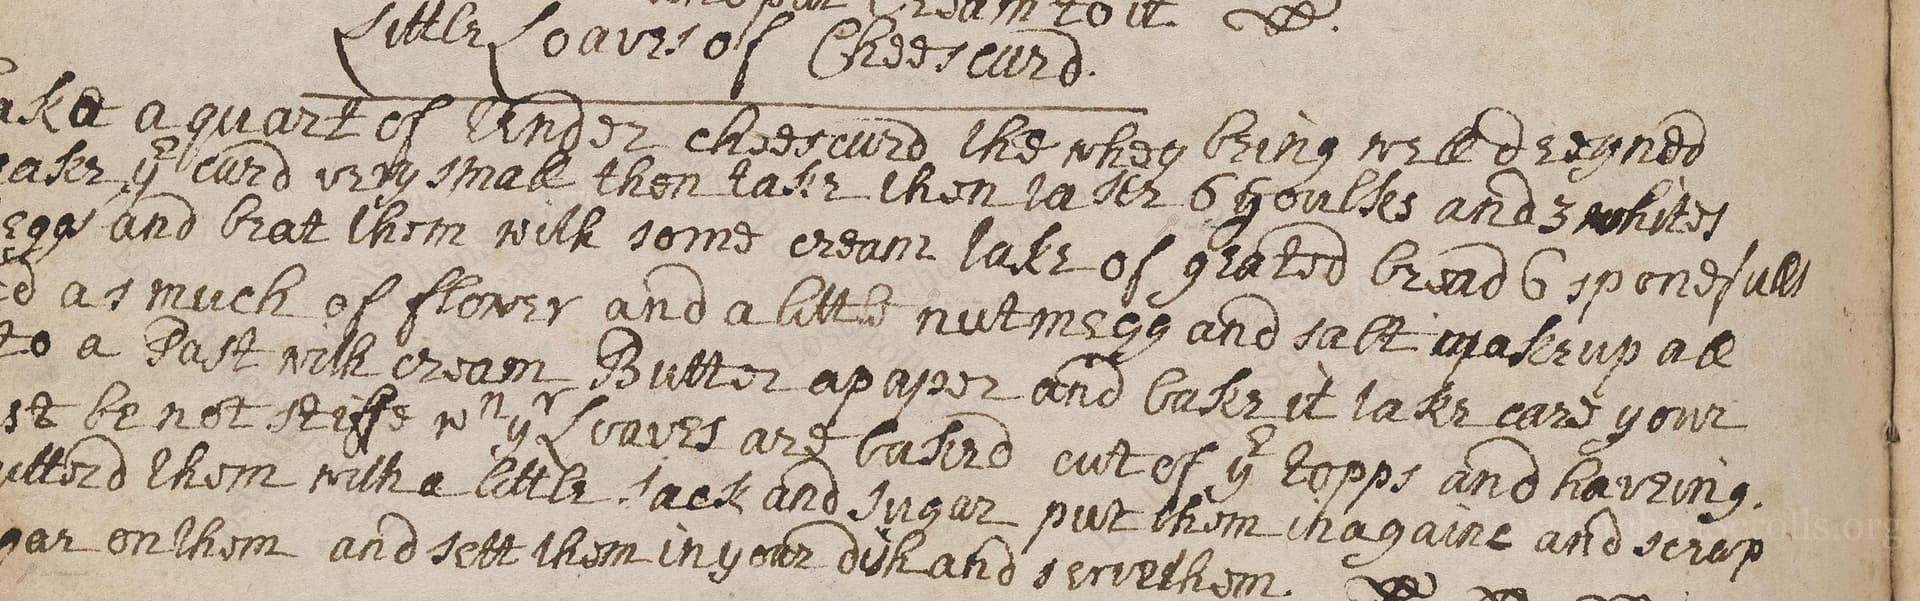 put Cream to it
Little Loaves of Cheescurd.
ake a quart of tender cheescurd the whey being well dreyned
eake yᵉ curd very small then take then take 6 youlkes and 3 whites
eggs and beat them with some cream take of grated bread 6 sponefulls
d as much of flower and a little nutmegg and salt make up all
to a Past with cream Butter a paper and bake it take care your
st be not stiffe wⁿ yʳ Loaves are baked cut of yᵉ topps and haveing.
utterd them with a little sack and sugar put them in againe and scrap
gar on them and sett them in your dish and serve them.